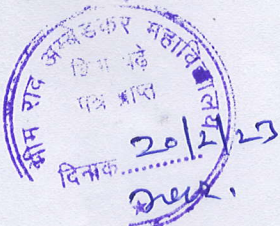 भीम राव अम्बेडकर महाविद्यालय
बिना पढ़े
पत्र प्राप्त
दिनांक 20/2/23